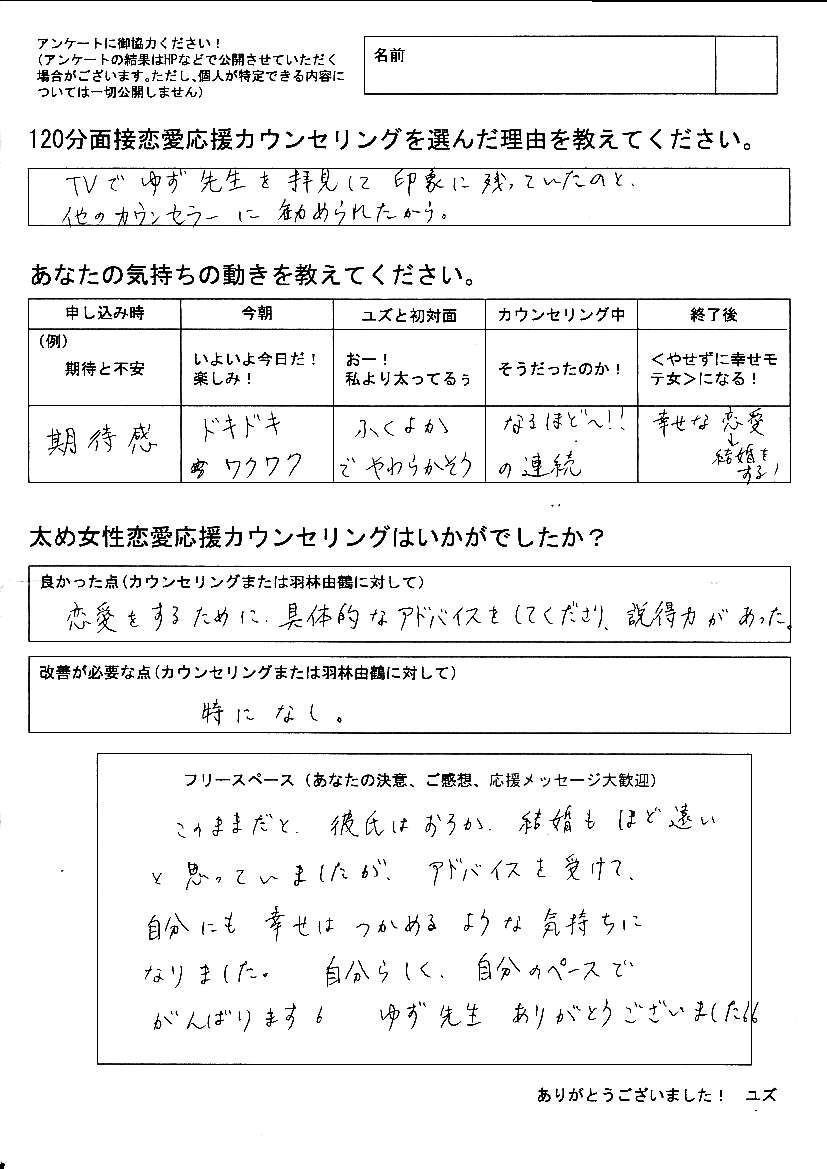 アンケートに御協力ください！
（アンケートの結果はHPなどで公開させていただく
場合がございます。ただし、個人が特定できる内容に
ついては一切公開しません）
名前
120分面接恋愛応援カウンセリングを選んだ理由を教えてください。
TVで ゆず先生を拝見して 印象に残っていたのと、
他のカウンセラーに勧められたから。
あなたの気持ちの動きを教えてください。
申し込み時 今朝 ユズと初対面 カウンセリング中 終了後
（例）
期待と不安
いよいよ今日だ！
楽しみ！
おー！
私より太ってるぅ
そうだったのか！
＜やせずに幸せモ
テ女＞になる！
期待感
ドキドキ
ワクワク
ふくよか
でやわらかそう
なるほど〜！！
の連続
幸せな恋愛
↓
結婚を
する！
太め女性恋愛応援カウンセリングはいかがでしたか？
良かった点（カウンセリングまたは羽林由鶴に対して）
恋愛をするために、具体的なアドバイスをしてくださり、説得力があった。
改善が必要な点（カウンセリングまたは羽林由鶴に対して）
特になし。
フリースペース（あなたの決意、ご感想、応援メッセージ大歓迎）
このままだと、彼氏はおろか、結婚もほど遠い
と思っていましたが、アドバイスを受けて、
自分にも幸せはつかめるような気持ちに
なりました。 自分らしく、自分のペースで
がんばります。 ゆず先生 ありがとうございました。
ありがとうございました！ ユズ